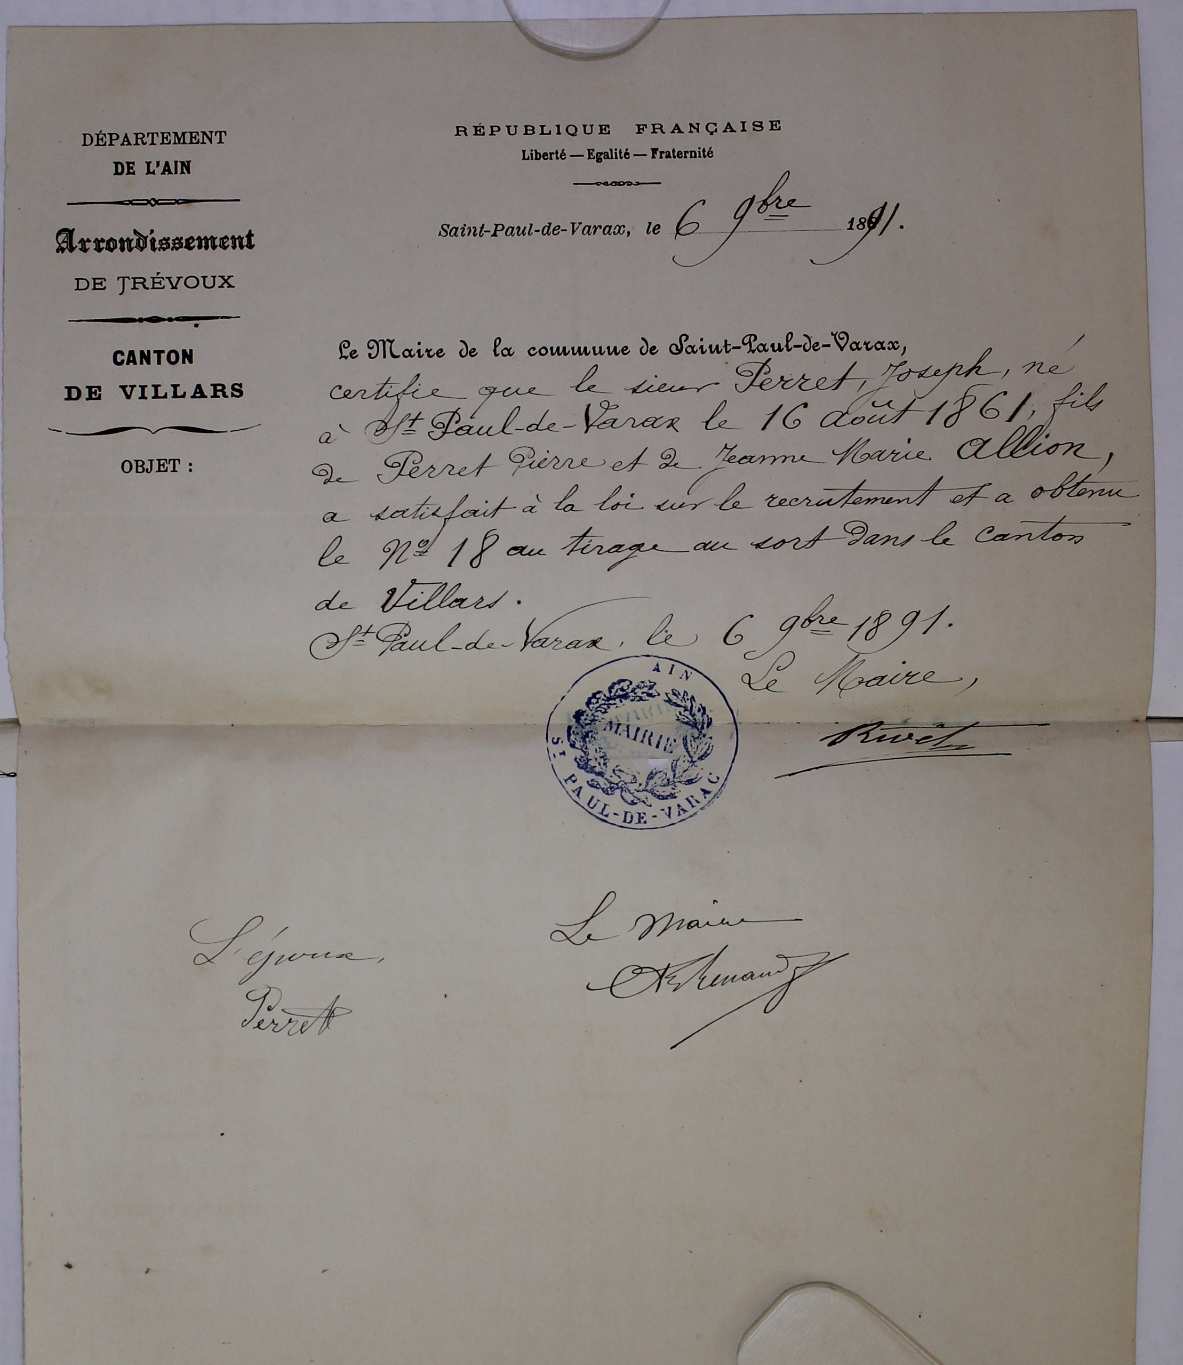 DÉPARTEMENT
DE L'AIN
Arrondissement
DE TRÉVOUX
CANTON
DE VILLARS
OBJET :
RÉPUBLIQUE FRANÇAISE
Liberté — Egalité — Fraternité
Saint-Paul-de-Varax, le 6 9bre 1891.
Le Maire de la commune de Saint-Paul-de-Varax,
certifie que le sieur Perret, Joseph, né
à St Paul-de-Varax le 16 août 1861, fils
de Perret Pierre et de Jeanne Marie Allion,
a satisfait à la loi sur le recrutement et a obtenu
le No 18 au tirage au sort dans le canton
de Villars.
St Paul-de-Varax, le 6 9bre 1891.
Le Maire,
AIN
MAIRIE
St PAUL-DE-VARAC
L'époux,
Perret
Le Maire